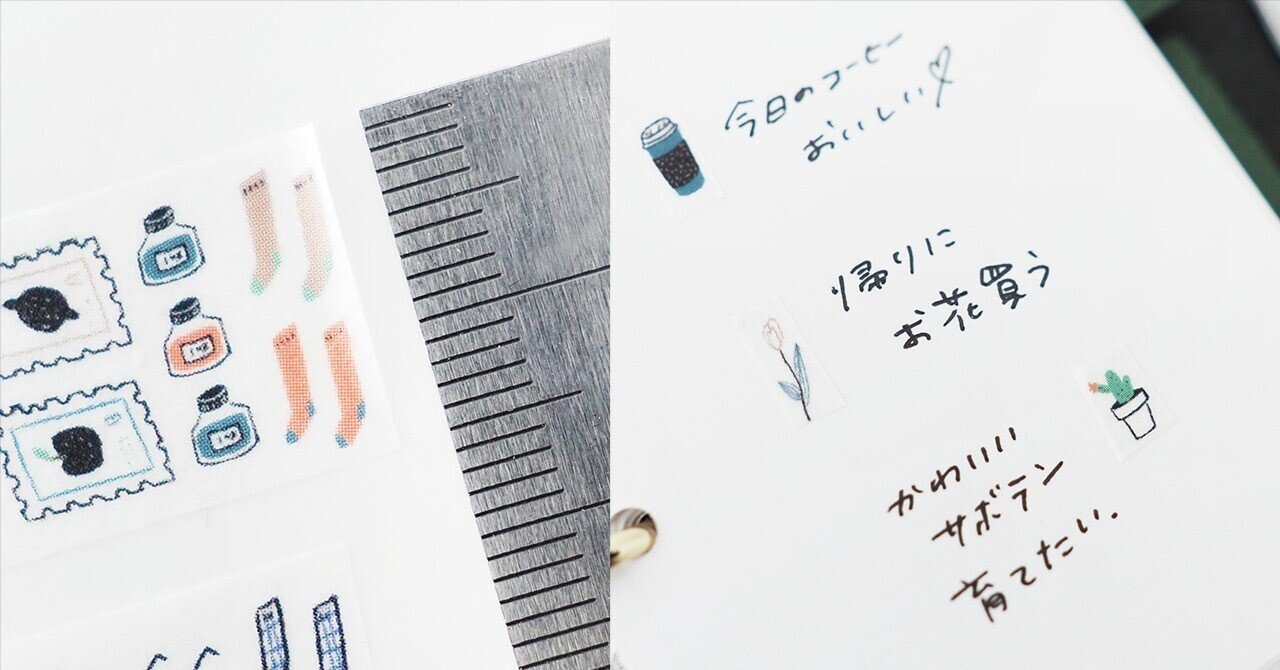 今日のコーヒー
おいしい♡
帰りに
お花買う
かわいい
サボテン
育てたい.